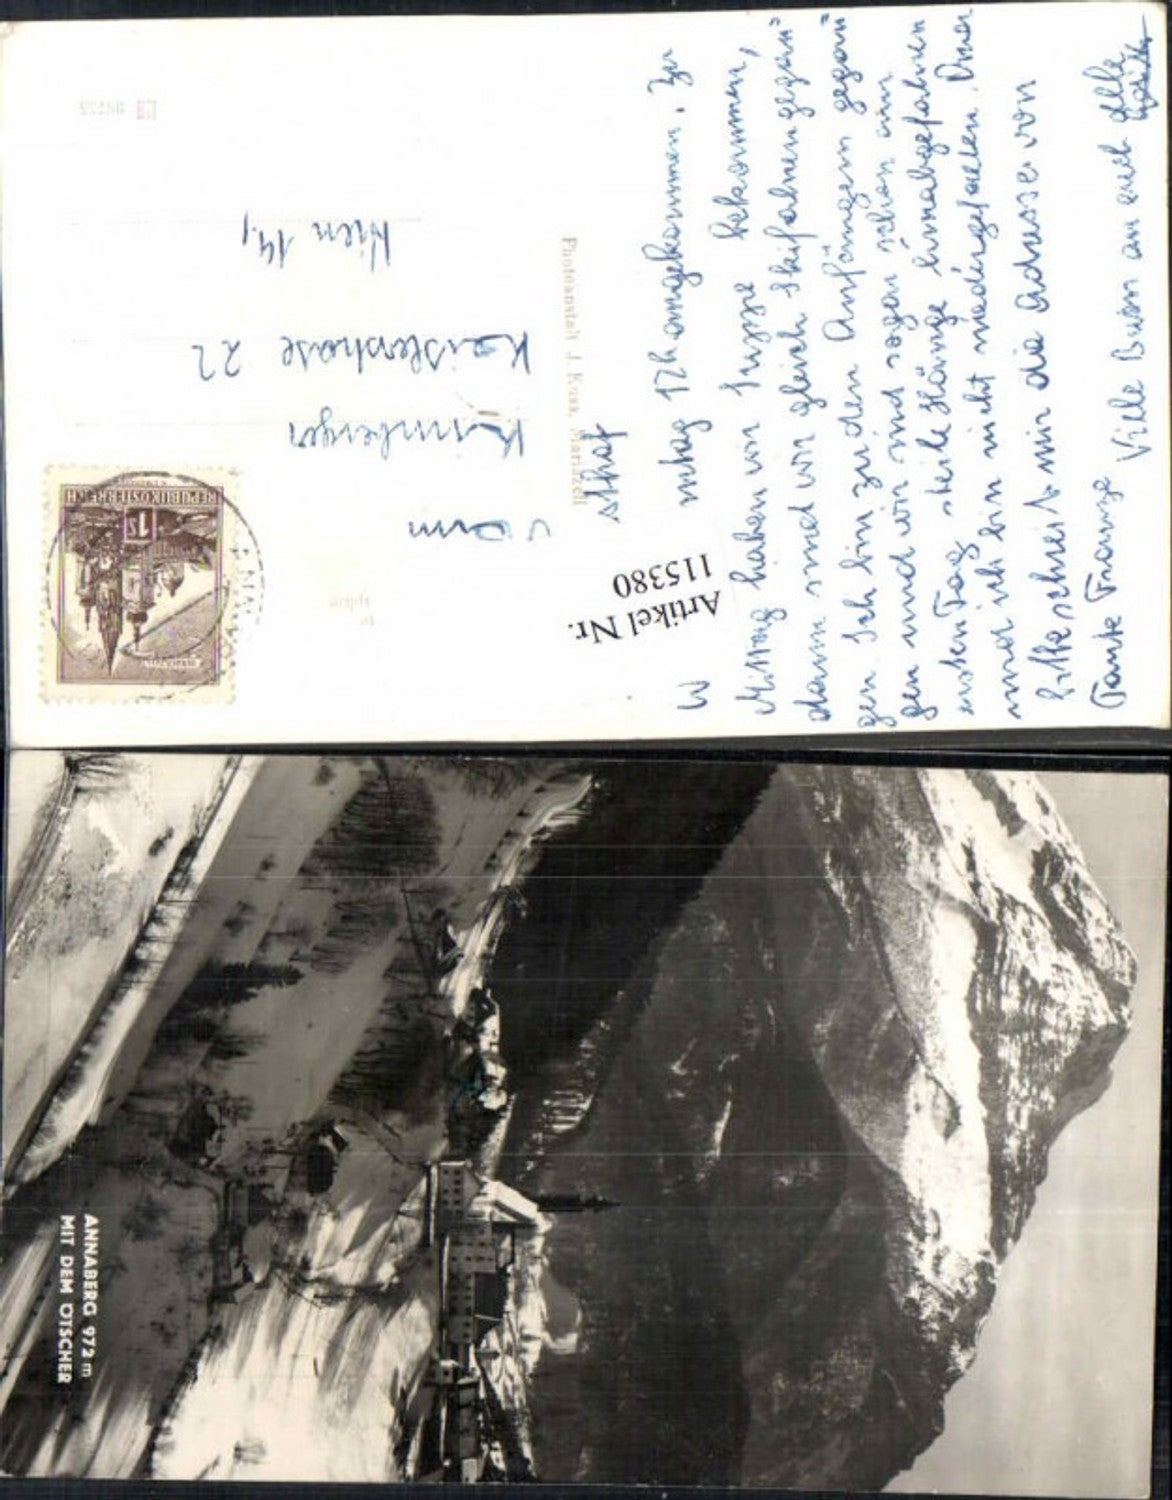 athof
mtag 12h angekommen. Zu
Mittag haben wir Suppe bekommen,
dann sind wir gleich Skifahren gegan=
gen. Ich bin zu den Anfängern gegan=
gen und wir sind sogar schon am
ersten Tag steile Hänge hinabgefahren
und ich bin nicht niedergefallen.
bitte schreib mir die Adresse von
Tante Franze Viele Bussi an euch alle
Artikel Nr.
115380
Photoanstalt J. Kuss, Mariazell
REPUBLIK ÖSTERREICH
1 S
Kaislerstrasse 22
Wien 14,
ANNABERG 972 m
MIT DEM ÖTSCHER